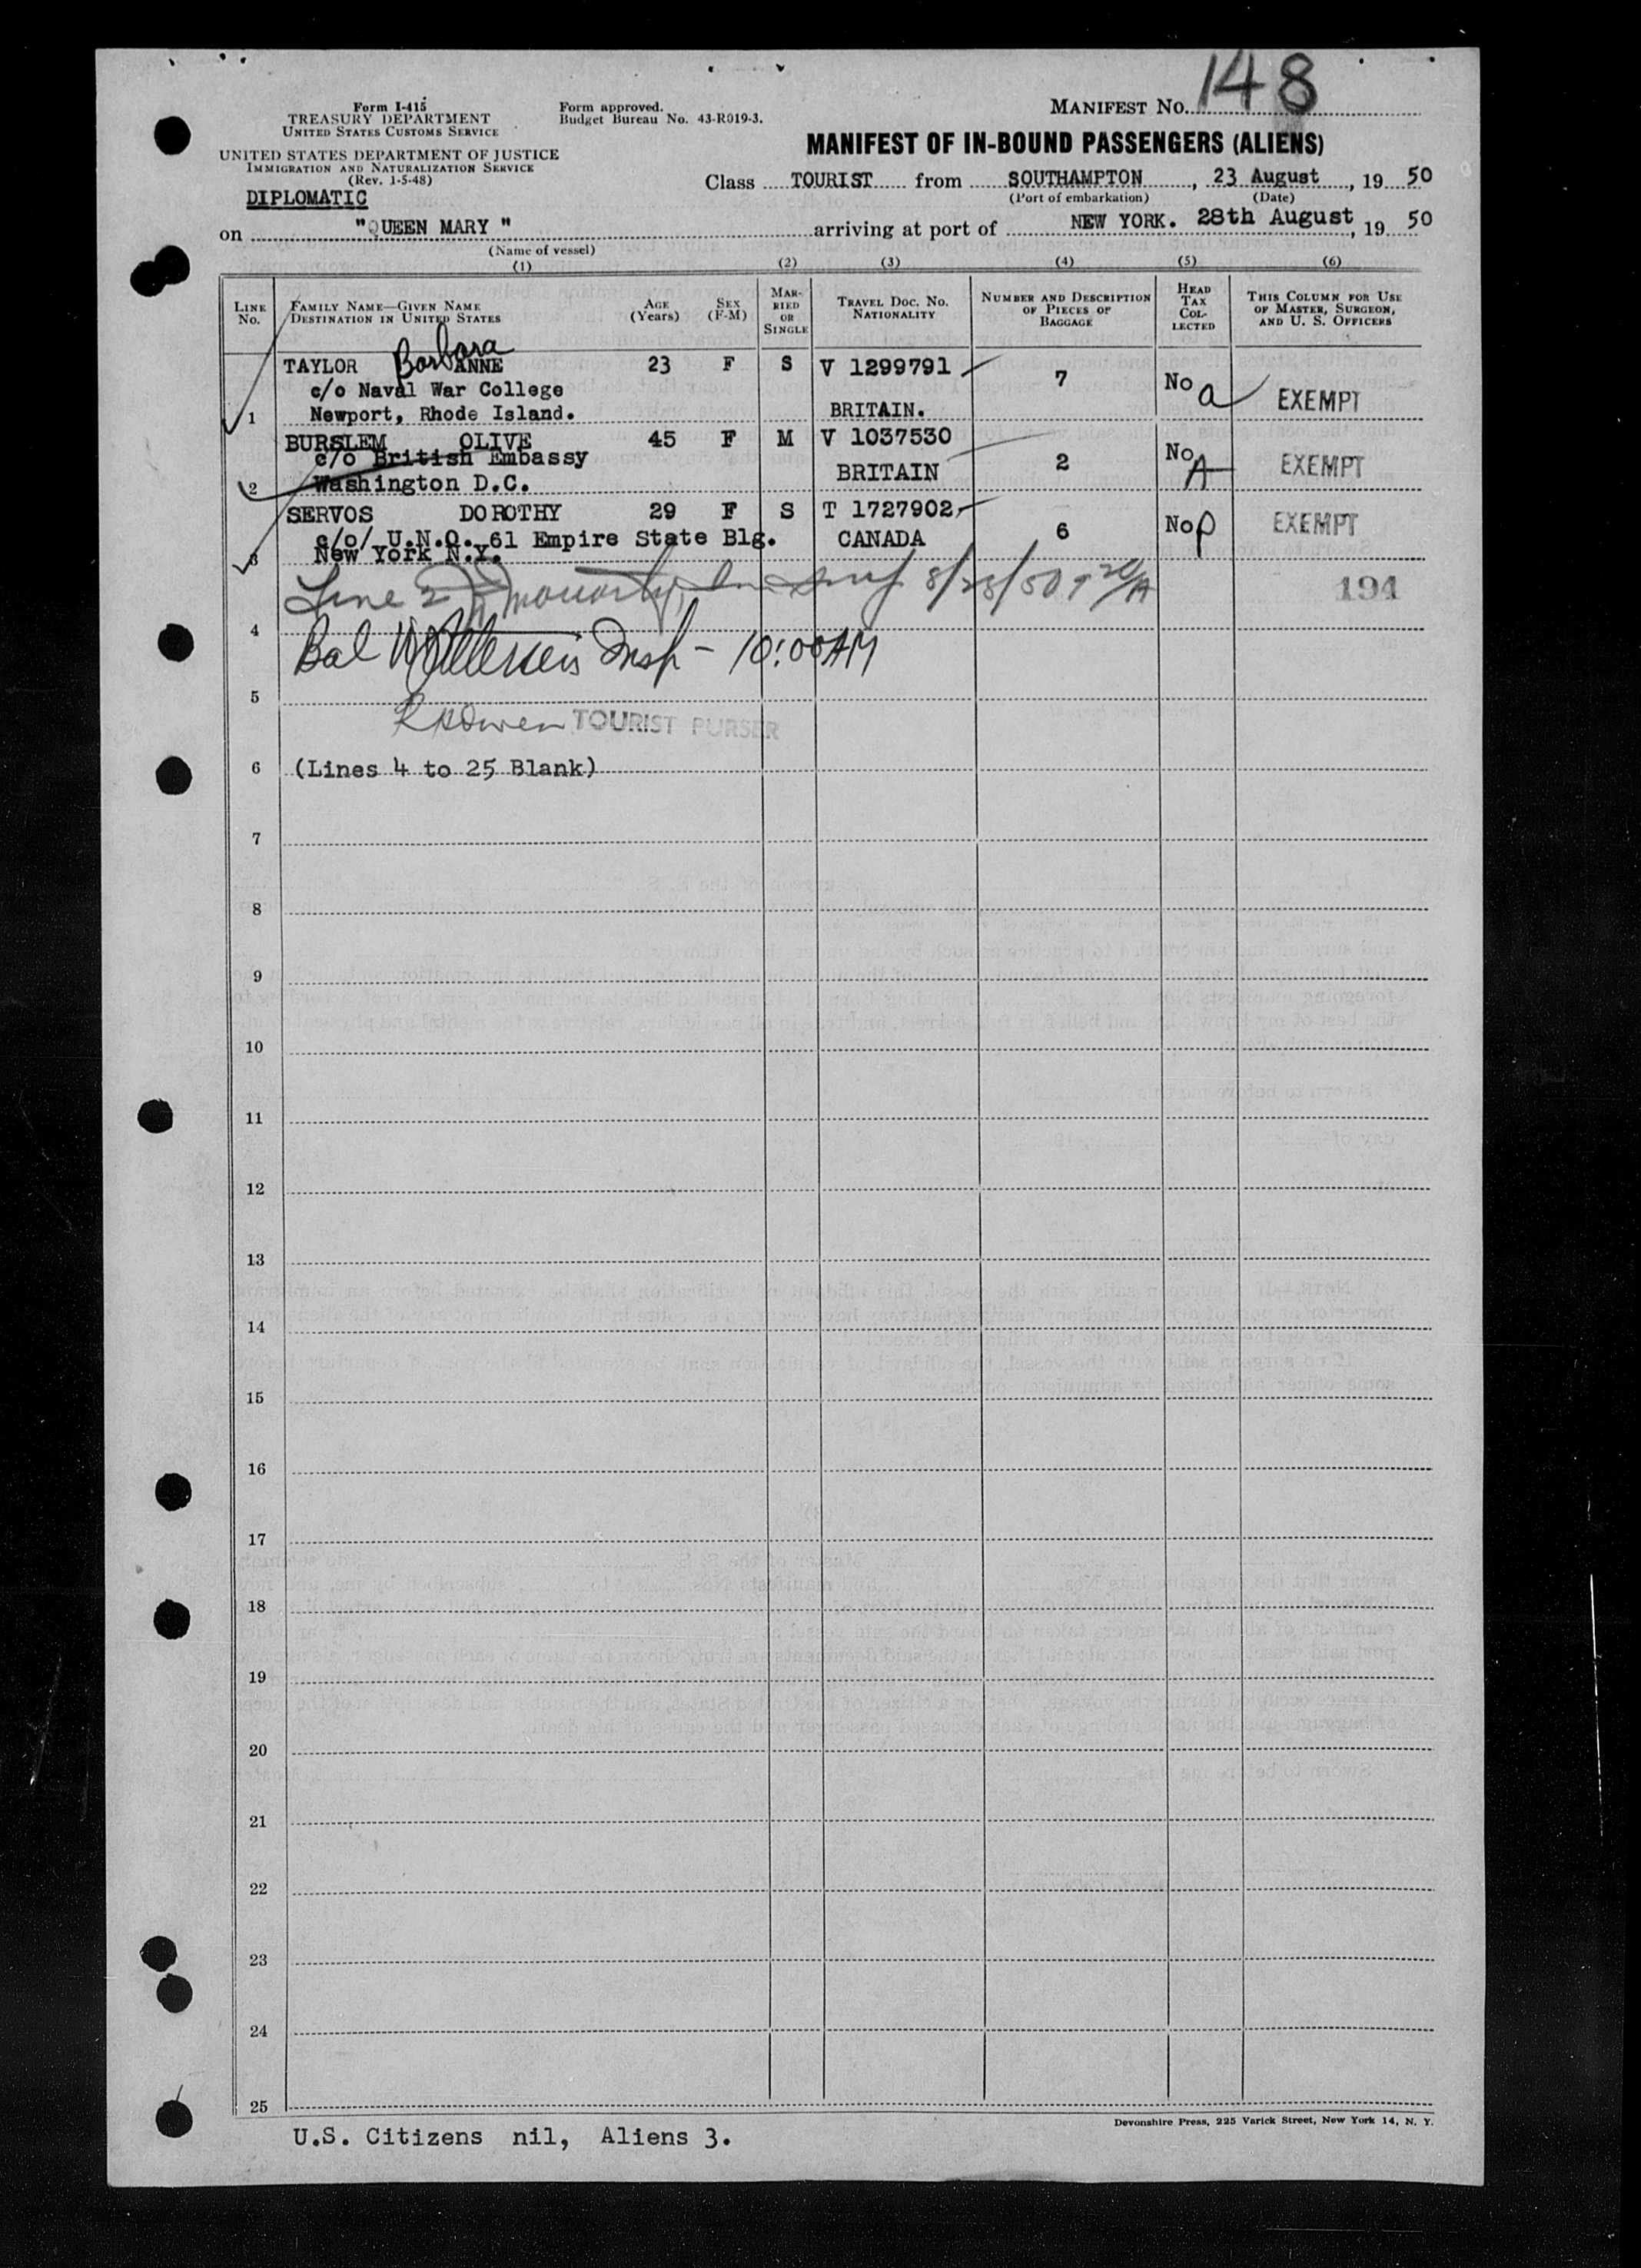 148
Form I-415
TREASURY DEPARTMENT
UNITED STATES CUSTOMS SERVICE
Form approved.
Budget Bureau No. 43-R019-3.
MANIFEST No.
MANIFEST OF IN-BOUND PASSENGERS (ALIENS)
UNITED STATES DEPARTMENT OF JUSTICE
IMMIGRATION AND NATURALIZATION SERVICE
(Rev. 1-5-48)
DIPLOMATIC
Class TOURIST from SOUTHAMPTON, 23 August, 19 50
(Port of embarkation) (Date)
on "QUEEN MARY " arriving at port of NEW YORK. 28th August, 19 50
(Name of vessel)
(1) (2) (3) (4) (5) (6)
LINE No. FAMILY NAME—GIVEN NAME DESTINATION IN UNITED STATES AGE (Years) SEX (F-M) MARRIED OR SINGLE TRAVEL DOC. NO. NATIONALITY NUMBER AND DESCRIPTION OF PIECES OF BAGGAGE HEAD TAX COLLECTED THIS COLUMN FOR USE OF MASTER, SURGEON, AND U. S. OFFICERS
TAYLOR Barbara ANNE 23 F S V 1299791 7 No a EXEMPT
c/o Naval War College
1 Newport, Rhode Island. BRITAIN.
BURSLEM OLIVE 45 F M V 1037530 2 No A EXEMPT
c/o British Embassy BRITAIN
2 Washington D.C.
SERVOS DOROTHY 29 F S T 1727902 6 No p EXEMPT
c/o/ U.N.O. 61 Empire State Blg. CANADA
3 New York N.Y.
Line 2 8/28/50 194
4 Bal Insp - 10:00AM
5
R Owen TOURIST PURSER
6 (Lines 4 to 25 Blank)
7
8
9
10
11
12
13
14
15
16
17
18
19
20
21
22
23
24
25
Devonshire Press, 225 Varick Street, New York 14, N. Y.
U.S. Citizens nil, Aliens 3.